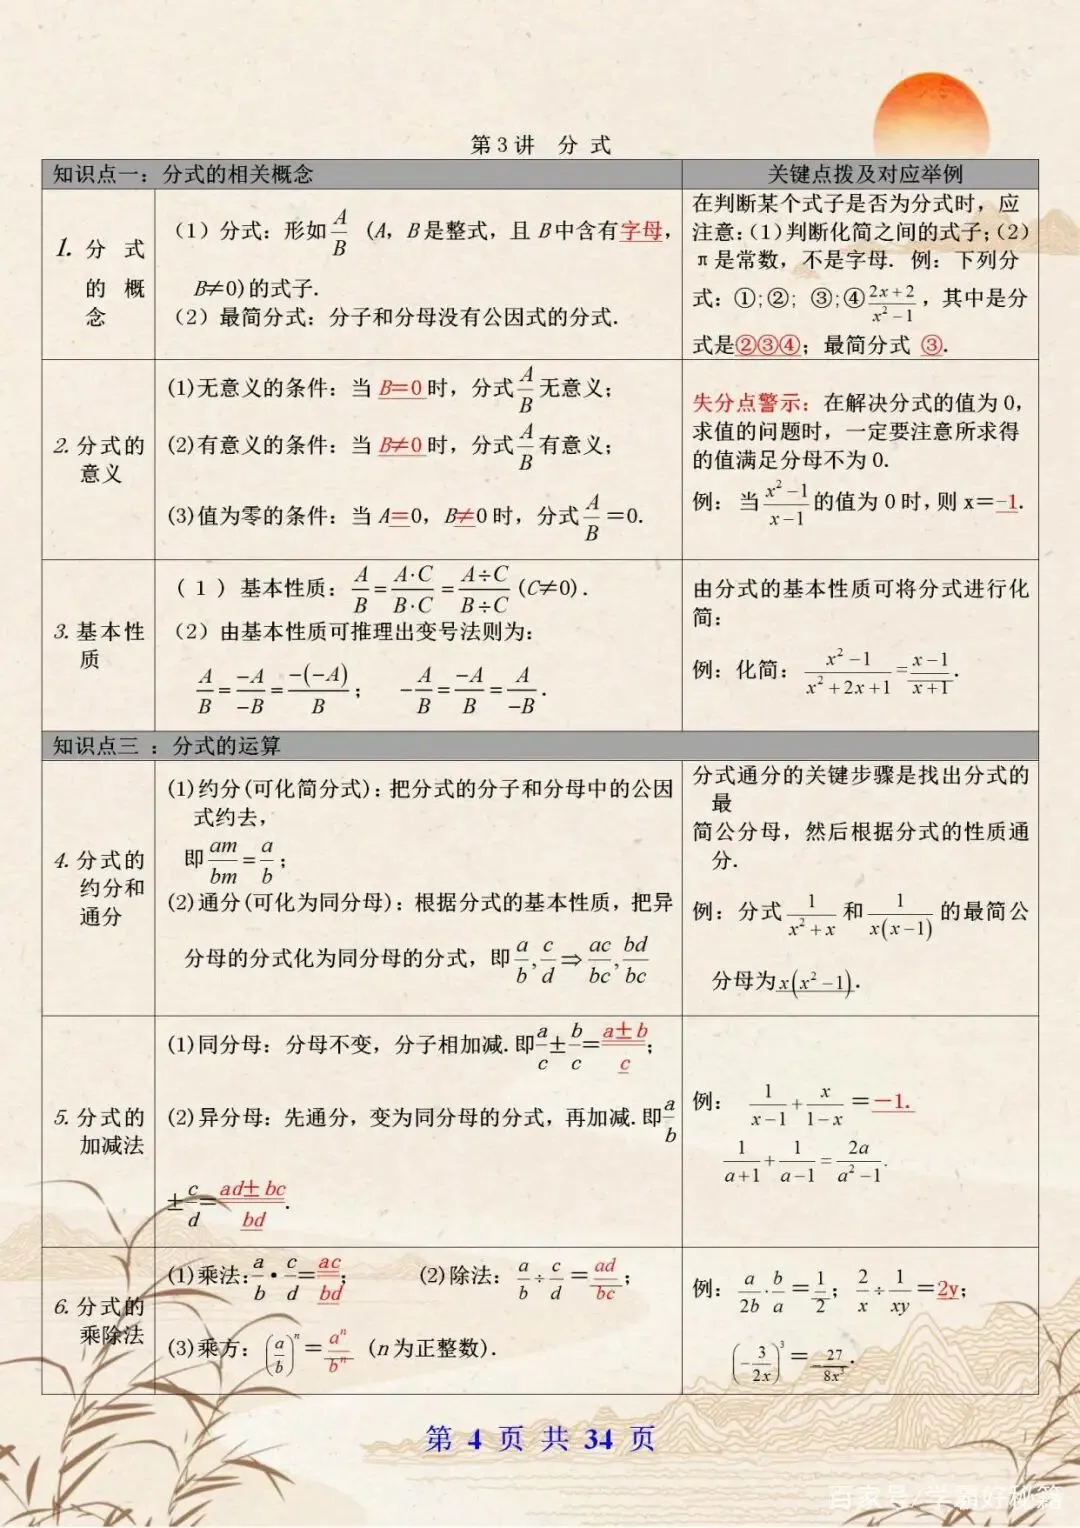 第3讲 分 式
知识点一：分式的相关概念
关键点拨及对应举例
1. 分 式
的 概
念
（1）分式：形如 A/B (A，B是整式，且B中含有字母，
B≠0)的式子.
（2）最简分式：分子和分母没有公因式的分式.
在判断某个式子是否为分式时，应
注意：(1)判断化简之间的式子；(2)
π是常数，不是字母. 例：下列分
式：①;②; ③;④(2x+2)/(x²-1)，其中是分
式是②③④；最简分式 ③.
2. 分式的
意义
(1)无意义的条件：当 B=0 时，分式A/B无意义；
(2)有意义的条件：当 B≠0 时，分式A/B有意义；
(3)值为零的条件：当 A=0，B≠0 时，分式A/B=0.
失分点警示：在解决分式的值为0，
求值的问题时，一定要注意所求得
的值满足分母不为0.
例：当(x²-1)/(x-1)的值为0时，则x=-1.
3. 基本性
质
( 1 ) 基本性质：A/B=(A·C)/(B·C)=(A÷C)/(B÷C)(C≠0).
（2）由基本性质可推理出变号法则为：
A/B=(-A)/(-B)=(-(-A))/B； -A/B=(-A)/B=A/(-B).
由分式的基本性质可将分式进行化
简：
例：化简：(x²-1)/(x²+2x+1)=(x-1)/(x+1).
知识点三 ：分式的运算
4. 分式的
约分和
通分
(1)约分(可化简分式)：把分式的分子和分母中的公因
式约去，
即am/bm=a/b；
(2)通分(可化为同分母)：根据分式的基本性质，把异
分母的分式化为同分母的分式，即a/b,c/d⇒ac/bc,bd/bc
分式通分的关键步骤是找出分式的
最
简公分母，然后根据分式的性质通
分.
例：分式1/(x²+x)和1/(x(x-1))的最简公
分母为x(x²-1).
5. 分式的
加减法
(1)同分母：分母不变，分子相加减.即a/c±b/c=(a±b)/c；
(2)异分母：先通分，变为同分母的分式，再加减.即a/b
±c/d=(ad±bc)/bd.
例：1/(x-1)+x/(1-x)=-1.
1/(a+1)+1/(a-1)=2a/(a²-1).
6. 分式的
乘除法
(1)乘法：a/b·c/d=ac/bd； (2)除法：a/b÷c/d=ad/bc；
(3)乘方：(a/b)ⁿ=aⁿ/bⁿ (n为正整数).
例：a/2b·b/a=1/2；2/x÷1/xy=2y；
(-3/2x)³=-27/8x³.
第 4 页 共 34 页
百家号/学霸好秘籍